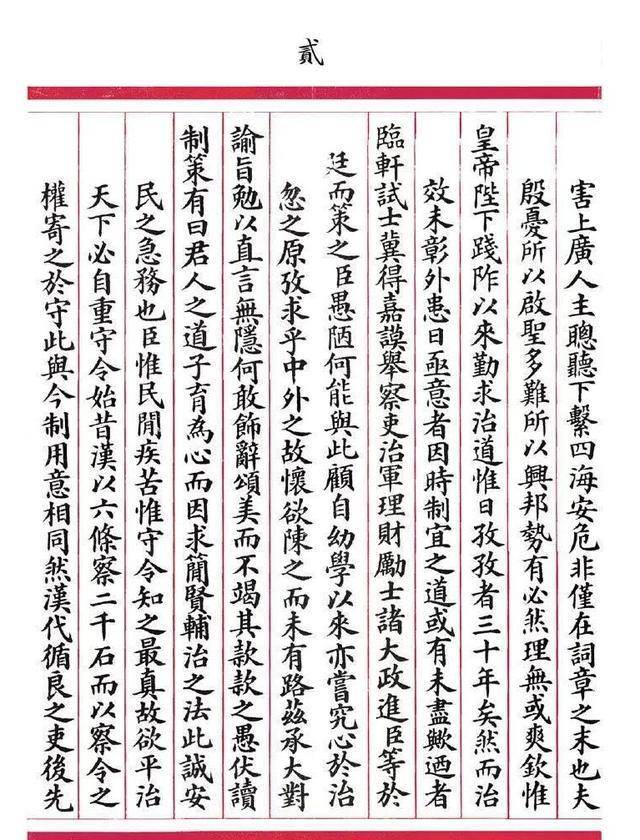 貳
害上廣人主聰聽下繫四海安危非僅在詞章之末也夫
殷憂所以啟聖多難所以興邦勢有必然理無或爽欽惟
皇帝陛下踐阼以來勤求治道惟日孜孜者三十年矣然而治
效未彰外患日亟意者因時制宜之道或有未盡歟迺者
臨軒試士冀得嘉謨舉察吏治軍理財勵士諸大政進臣等於
廷而策之臣愚陋何能與此顧自幼學以來亦嘗究心於治
忽之原攷求乎中外之故懷欲陳之而未有路茲承大對
諭旨勉以直言無隱何敢飾辭頌美而不竭其款款之愚伏讀
制策有曰君人之道子育為心而因求簡賢輔治之法此誠安
民之急務也臣惟民閒疾苦惟守令知之最真故欲平治
天下必自重守令始昔漢以六條察二千石而以察令之
權寄之於守此與今制用意相同然漢代循良之吏後先